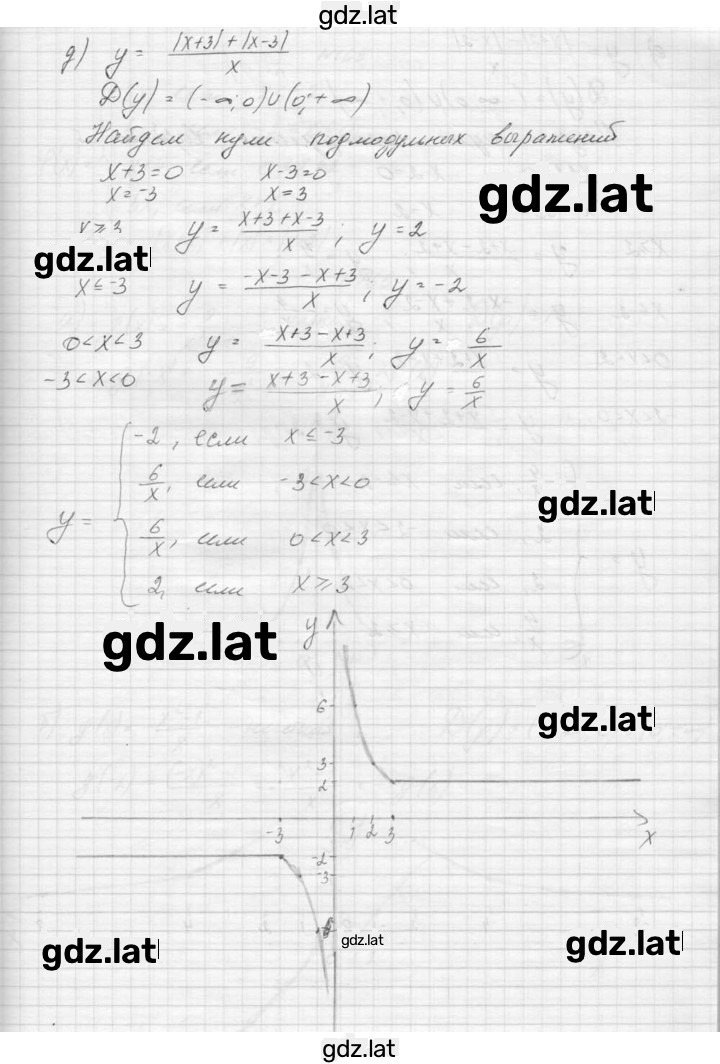 gdz.lat
д) y = |x+3| + |x-3| / x
D(y) = (-∞; 0) ∪ (0; +∞)
Найдем нули подмодульных выражений
x+3=0 x-3=0
x=-3 x=3
gdz.lat
x ≥ 3 y = x+3+x-3 / x ; y = 2
gdz.lat
x ≤ -3 y = -x-3-x+3 / x ; y = -2
0<x<3 y = x+3-x+3 / x ; y = 6/x
-3<x<0 y = x+3-x+3 / x ; y = 6/x
y = { -2, если x ≤ -3
6/x, если -3<x<0
gdz.lat
6/x, если 0<x<3
2, если x ≥ 3
gdz.lat
y
6
gdz.lat
3
2
-3 1 2 3 x
-2
-3
gdz.lat
gdz.lat
gdz.lat
gdz.lat